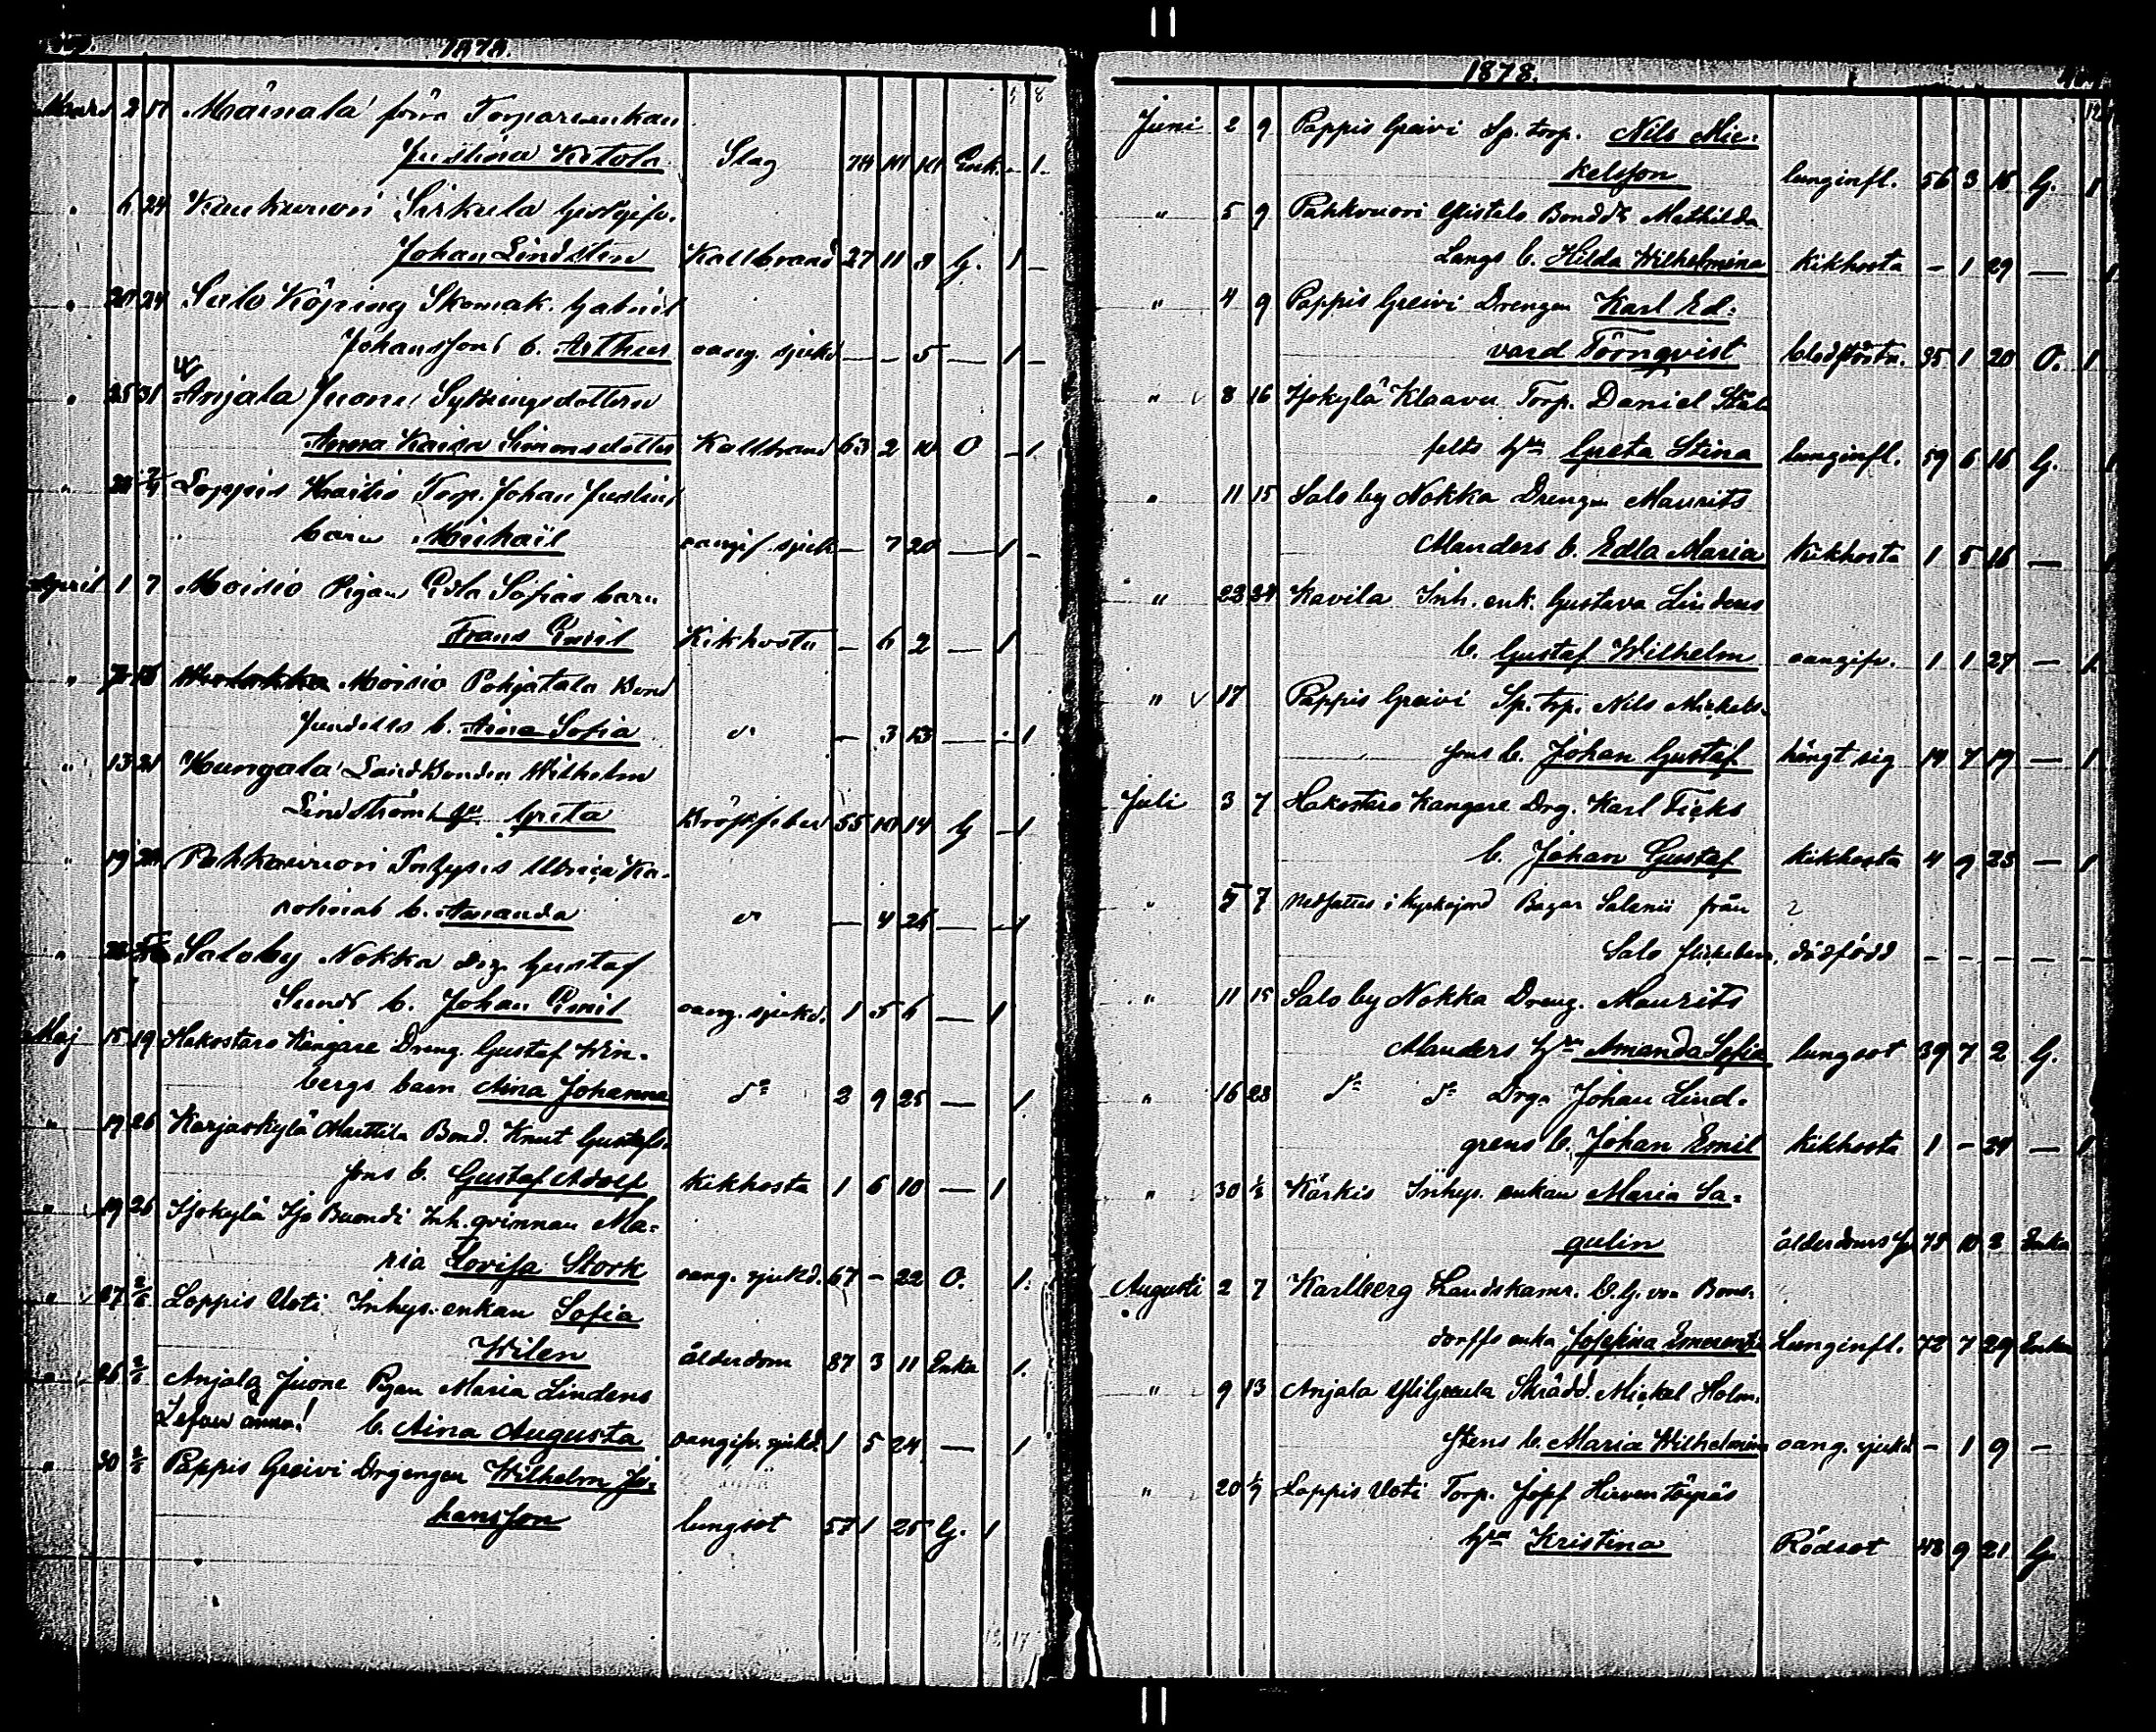 1878.
Mars 2 17 Mainala förra Torparenkan
Justina Ketola Slag 74 Enk. 1.
" 6 24 Kaukovuori Sirkula
Johan Lindsten Kallbrand 27 11 9 G. 1 -
" 20 24 Salo Köping Skomak. Gabriel
Johanssons b. Arthur oang. sjukd. - - 5 - 1 -
" 25 31 Anjala Juoni Sytningsdottern
Anna Kaisa Simonsdotter Kallbrand 63 2 10 O - 1
" Loppis Torp. Johan Juslins
barn Michaïl oangif. sjuk - 7 20 - 1 -
April 1 7 Moisio Pigan Edla Sofias barn
Frans Emil Kikhosta - 6 2 - 1
" Moisio Pohjatalo Bond
b. Aina Sofia d:o - 3 13 - 1
" 13 21 Kungala Bonden Wilhelm
Lindström hu Greta 55 14 G - 1
" 19 Pahkavuori Inhys:s Ulrica Ka-
rolinas b. Amanda d:o - 4 26 - 1
" Salo by Nokka Drg. Gustaf
Sunds b. Johan Emil oang. sjukd. 1 5 6 - 1
Maj 15 19 Hakostaro Kangare Dreng. Gustaf Win-
bergs barn Aina Johanna d:o 2 9 25 - 1
" 19 26 Karjaskylä Marttila Bond. Knut Gustafs-
sons b. Gustaf Adolf kikhosta 1 6 10 - 1
" 19 26 Isokylä Iso Buondi Inh. qvinnan Ma-
ria Lovisa Stork oang. sjukd. 67 - 22 O. 1.
" 27 2/6 Loppis Uoti Inhys. enkan Sofia
Wilen ålderdom 87 3 11 Enka 1.
" 26 2/6 Anjala Juone Pigan Maria Lindens
Lefver ännu! b. Aina Augusta oangifv. sjukd. 1 5 24 - 1
" 30 2/6 Pappis Greivi Drgengen Wilhelm Jo-
hansson lungsot 57 1 25 G. 1
1878.
Juni 2 9 Pappis Greivi Sp. torp. Nils Mic-
kelsson lunginfl. 56 3 16 G. 1
" 5 9 Pahkvuori Ylistalo Bondd:r Mathilda
Langs b. Hilda Wilhelmina Kikhosta - 1 29 - 1
" 4 9 Pappis Greivi Drengen Karl Ed-
vard Törnqvist blodstörtn. 35 1 20 O. 1
" 8 16 Isokylä Klaavu Torp. Daniel Stål-
felts hru Greta Stina lunginfl. 59 6 16 G. 1
" 11 15 Salo by Nokka Drengen Maurits
Manders b. Edla Maria Kikhosta 1 5 16 - 1
" 23 24 Kavila Inh. enk. Gustava Lindens
b. Gustaf Wilhelm oangifv. 1 1 27 - 1
" 17 Pappis Greivi Sp. torp. Nils Mickels-
sons b. Johan Gustaf hängt sig 14 7 19 - 1
Juli 3 7 Hakostaro Kangare Drg. Karl Ficks
b. Johan Gustaf kikhosta 4 9 23 - 1
" 5 7 Nedsattes i kyrkojord Bagar Salenii från
Salo flickebarn, dödfödd - - - - - -
" 11 15 Salo by Nokka Dreng. Maurits
Manders hru Amanda Sofia lungsot 39 7 2 G.
" 16 23 d:o d:o Drg. Johan Lind-
grens b. Johan Emil Kikhosta 1 - 24 - 1
" 30 1/8 Kärkis Inhys. enkan Maria Sa-
gulin ålderdoms 78 10 2 Enka
Augusti 2 7 Karlberg Landskamr. C. G. von Bons-
dorffs enka Josefina Emerentia Lunginfl. 72 7 29 Enka
" 9 13 Anjala Skrädd. Mickel Holm-
stens b. Maria Wilhelmina oang. sjukd. - 1 9 -
" 20 1/9 Loppis Uoti Torp. Josef Hirventöyräs
hru Kristina Rödsot 48 9 21 G